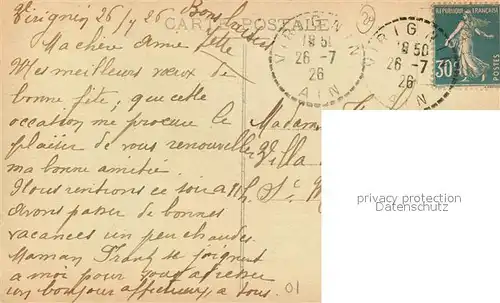 Virignin 26/7 26
Bons baisers
CARTE POSTALE
Ma chère Amie fête
Mes meilleurs vœux de
bonne fête ; que cette
occasion me procure le
plaisir de vous renouveller
ma bonne amitié.
Nous rentrons ce soir à 11h.
avons passé de bonnes
vacances un peu chaudes.
Maman Frank se joignent
a moi pour vous adresser
un bonjour affectueux, a tous.
Madame
Villa
St
VIRIGNIN
19 50
26 - 7
26
AIN
VIRIGNIN
19 50
26 - 7
26
AIN
REPUBLIQUE FRANÇAISE
30
POSTES
privacy protection
Datenschutz
01